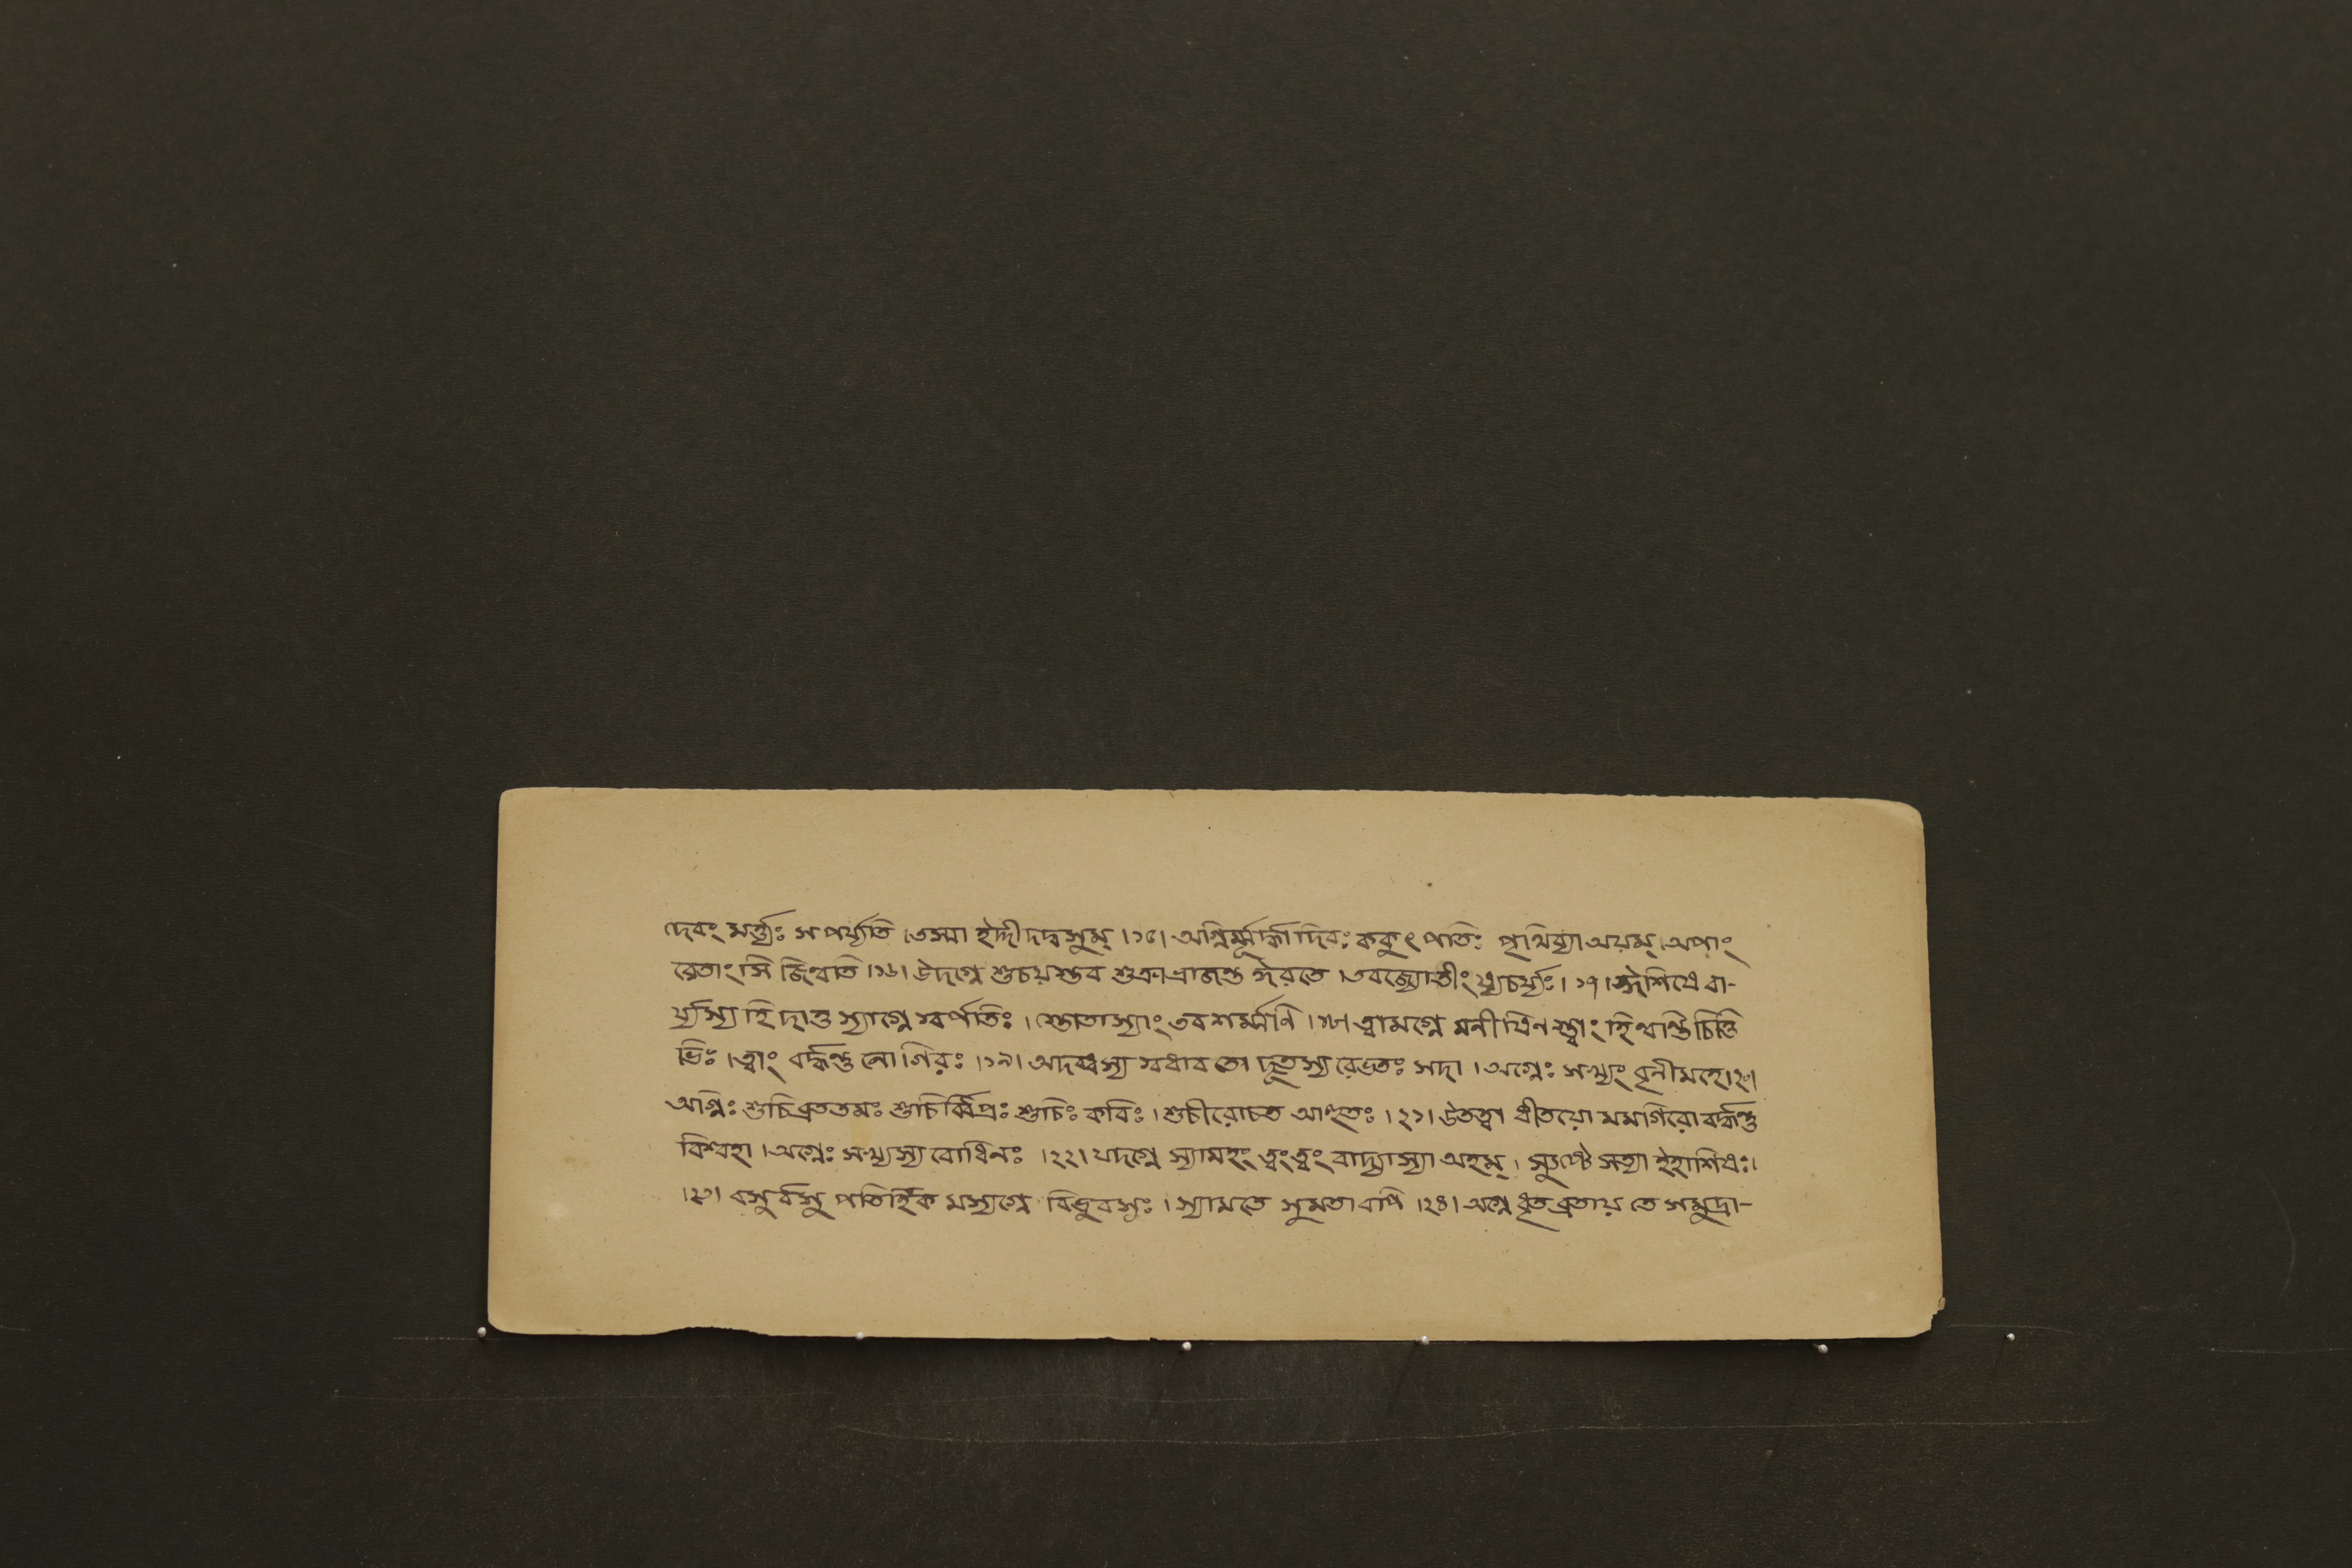 দেবং মর্ত্ত্যঃ সপর্য্যতি ।তস্মা ইদ্দীদদ্বসুম্ ।১৫। অগ্নির্ম্মূর্দ্ধা দিবঃ ককুৎ পতিঃ পৃথিব্যা অয়ম্ ।অপাং
রেতাংসি জিন্বতি ।১৬। উদগ্নে শুচয়স্তব শুক্রা ভ্রাজন্ত ঈরতে ।তবজ্যোতীংষ্যর্চ্চয়ঃ। ১৭। ঈশিষে বা-
র্য্যস্য হি দাত্রস্যাগ্নে স্বর্পতিঃ । স্তোতাস্যাং তব শর্ম্মণি ।১৮। ত্বামগ্নে মনীষিন স্ত্বাং হিন্বন্তি চিত্তি
ভিঃ ।ত্বাং বর্দ্ধন্তু নো গিরঃ ।১৯। অদব্ধস্য স্বধাবতো দূতস্য রেভতঃ সদা । অগ্নেঃ সখ্যং বৃনীমহে।২০।
অগ্নিঃ শুচিব্রততমঃ শুচির্ব্বিপ্রঃ শুচিঃ কবিঃ । শুচীরোচত আহুতঃ । ২১। উতত্বা ধীতয়ো মমগিরো বর্দ্ধন্তু
বিশ্বহা ।অগ্নেঃ সখ্যস্য বোধিনঃ ।২২। যদগ্নে স্যামহং ত্বংত্বং বাদ্যাস্যা অহম্ । স্যুষ্টে সত্যা ইহাশিষঃ।
।২৩। বসুর্বসু পতির্হিক মস্যগ্নে বিভুবসুঃ । স্যামতে সুমতা বপি ।২৪। অগ্নে ধৃতব্রতায় তে সমুদ্রা-